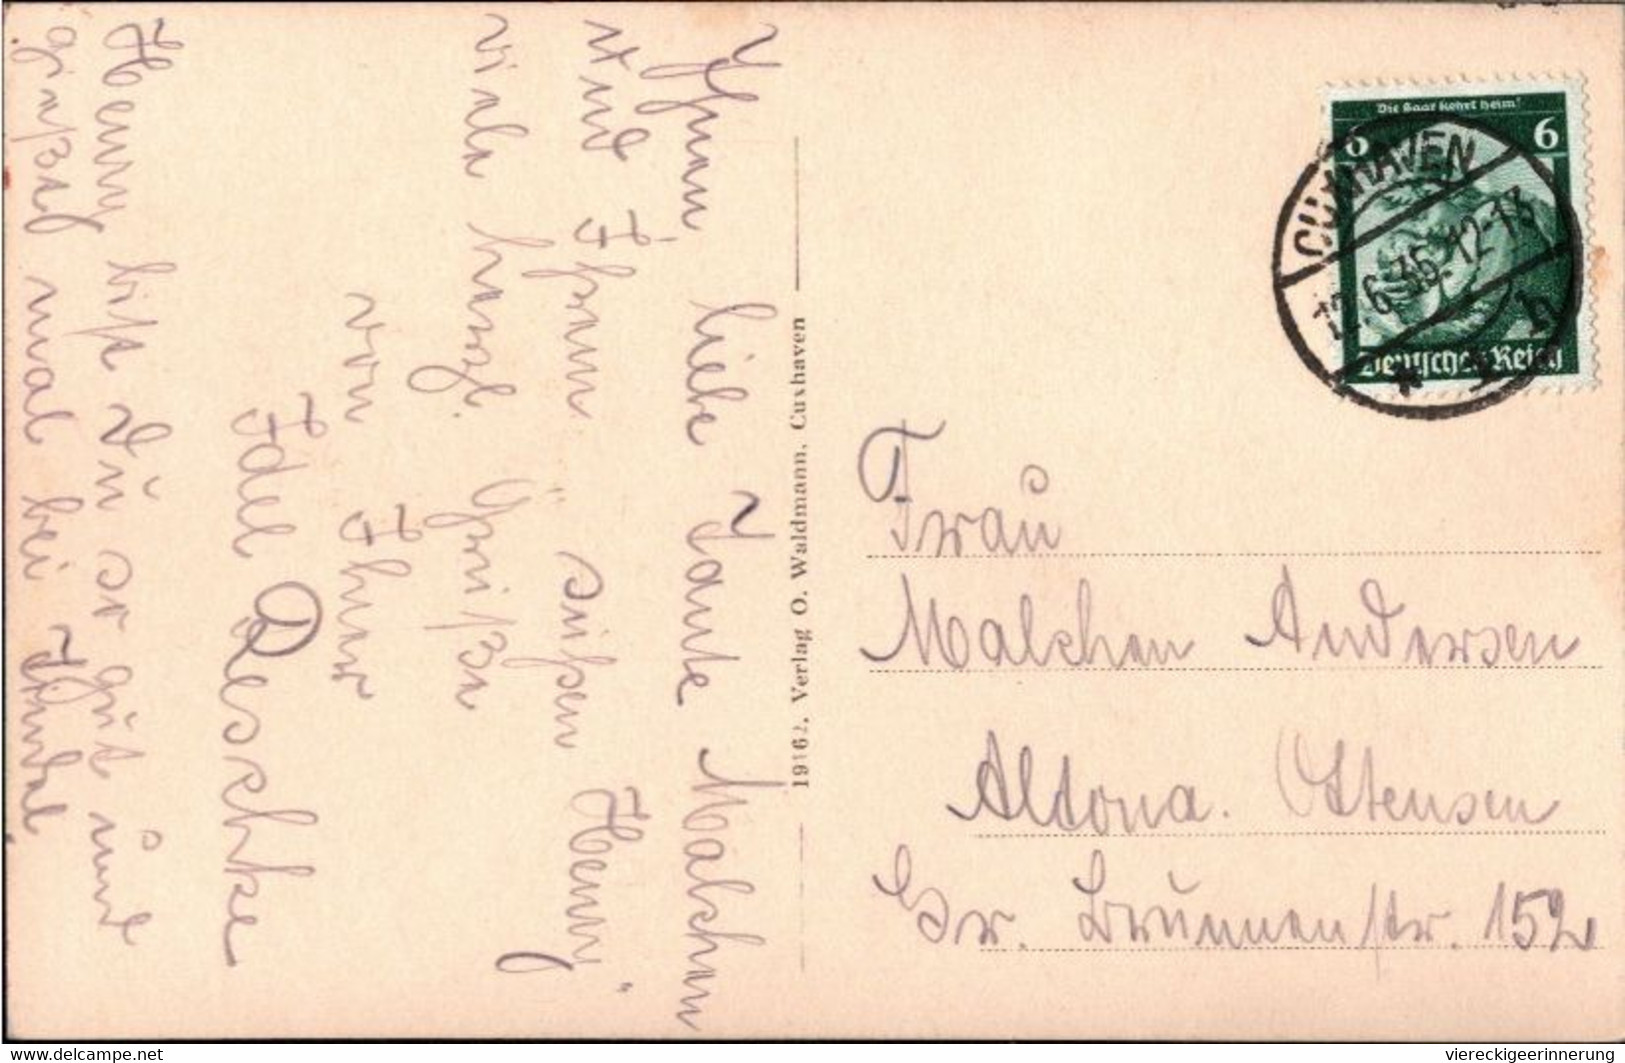 Ihnen, liebe Tante Malchen
und Ihrem süßen Henny
viele herzl. Grüße
von Ihrer
Edel Deschke
Henny bist Du so gut und
gießst mal bei
19162. Verlag O. Waldmann, Cuxhaven
Die Saar kehrt heim!
6 6
Deutsches Reich
CUXHAVEN
12-13
h
Frau
Malchen Andersen
Altona. Ottensen
Gr. Brunnenstr. 152
www.delcampe.net
viereckigeerinnerung